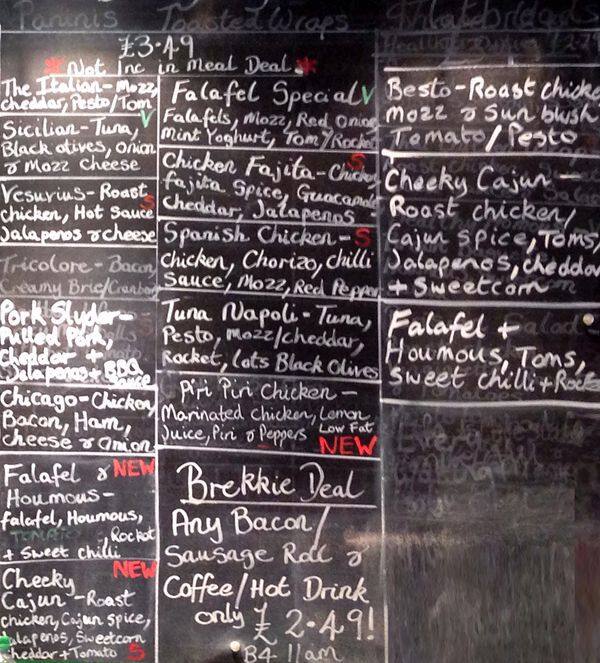 Paninis
Toasted Wraps
£3.49
*Not Inc in Meal Deal*
The Italian - Mozz,
cheddar, Pesto/Tom
V
Sicilian - Tuna,
Black olives, onion
& Mozz cheese
Vesuvius - Roast
chicken, Hot Sauce S
Jalapenos & cheese
Tricolore - Bacon,
Creamy Brie/Cranberry
Pork Slyder -
Pulled Pork,
Cheddar +
Jalapenos + BBQ
Sauce
Chicago - Chicken,
Bacon, Ham,
cheese & onion
Falafel & NEW
Houmous -
falafel, Houmous,
Tomato, Rocket
+ Sweet chilli
Cheeky NEW
Cajun - Roast
chicken, Cajun spice,
Jalapenos, Sweetcorn
cheddar + Tomato S
Falafel Special V
Falafels, Mozz, Red Onion
Mint Yoghurt, Tom/Rocket
Chicken Fajita - Chicken S
fajita Spice, Guacamole
Cheddar, Jalapenos -
Spanish Chicken - S
chicken, Chorizo, chilli
Sauce, Mozz, Red Pepper
Tuna Napoli - Tuna,
Pesto, mozz/cheddar,
Rocket, lots Black Olives
Piri Piri Chicken -
Marinated chicken, Lemon
Juice, Piri & Peppers Low Fat
NEW
Brekkie Deal
Any Bacon/
Sausage Roll &
Coffee/Hot Drink
only £2.49!
B4 11am
Flatbreads
Besto - Roast chicken
mozz & Sun blush
Tomato/Pesto
Cheeky Cajun -
Roast chicken,
Cajun spice, Toms,
Jalapenos, cheddar
+ Sweetcorn
Falafel +
Houmous, Toms,
Sweet chilli + Rocket